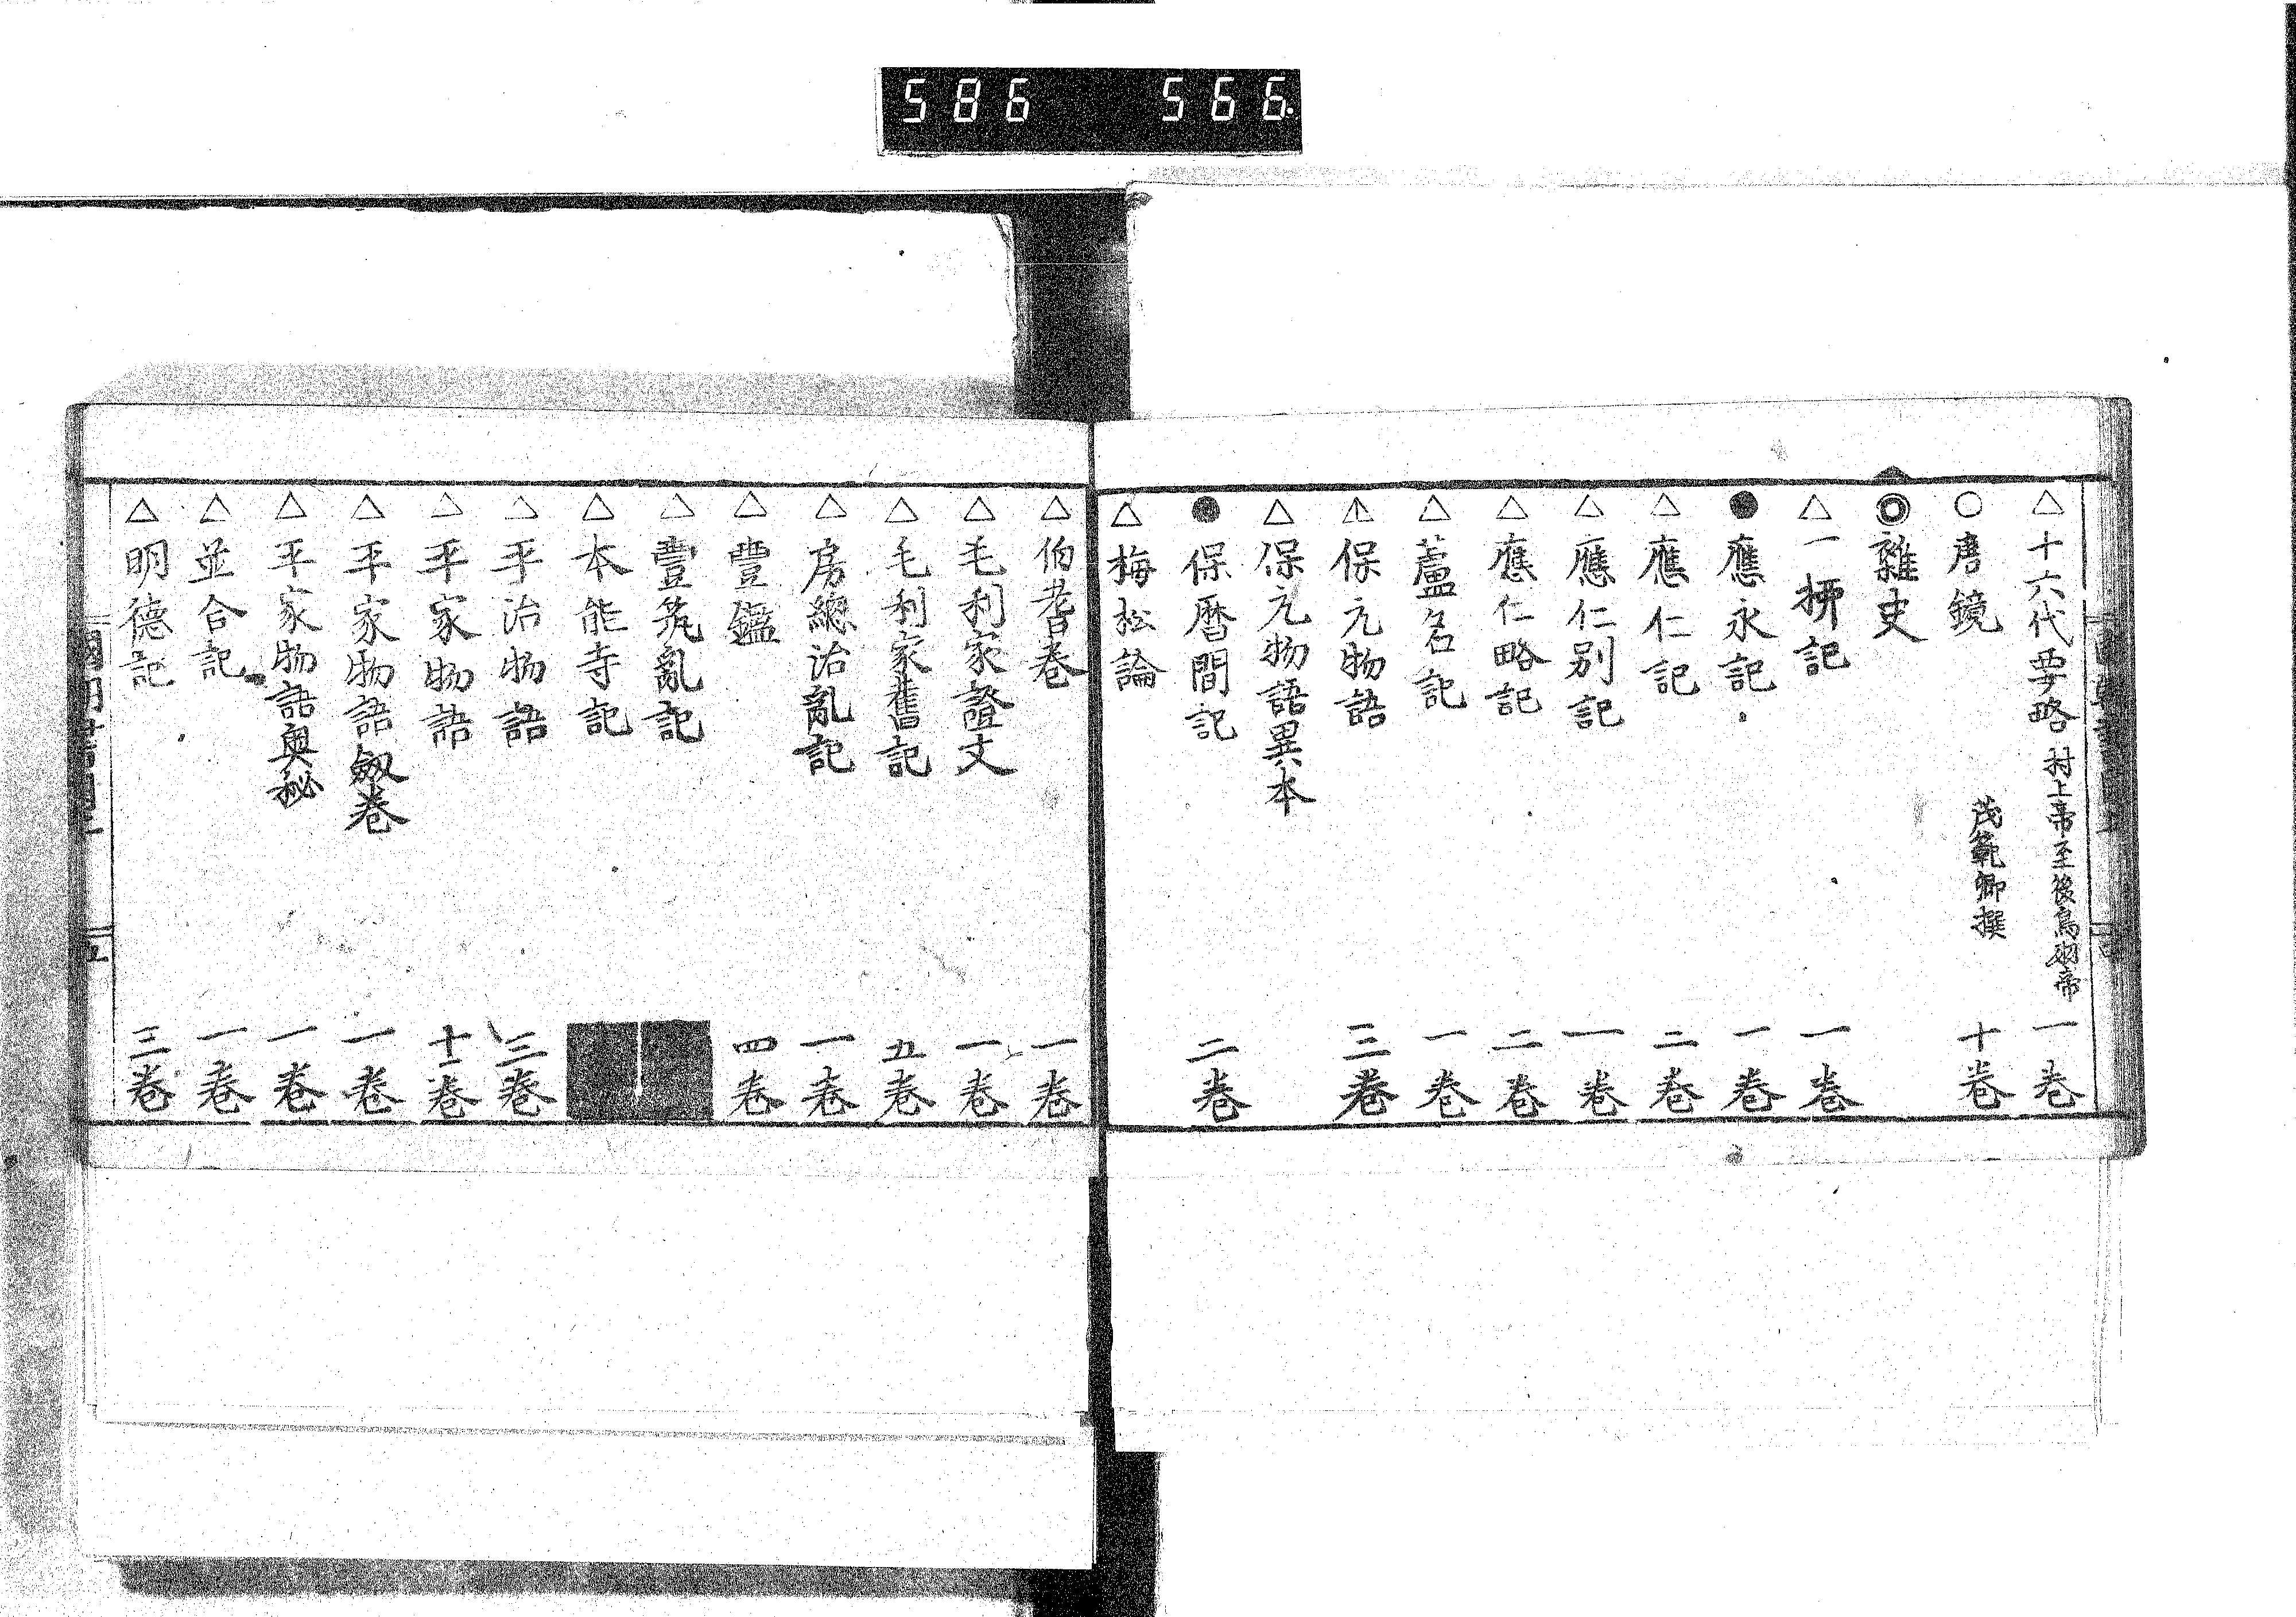 586 566.
△十六代要略 村上帝至後鳥羽帝 一卷
○唐鏡 茂範卿撰 十卷
◎雜史
△一栁記 一卷
●應永記 一卷
△應仁記 二卷
△應仁别記 一卷
△應仁略記 二卷
△蘆名記 一卷
△保元物語 三卷
△保元物語異本
●保暦間記 二卷
△梅松論
△伯耆卷 一卷
△毛利家證文 一卷
△毛利家舊記 五卷
△房總治亂記 一卷
△豐鑑 四卷
△豐筑亂記
△本能寺記
△平治物語 三卷
△平家物語 十二卷
△平家物語劔卷 一卷
△平家物語奥秘 一卷
△並合記 一卷
△明德記 三卷
五